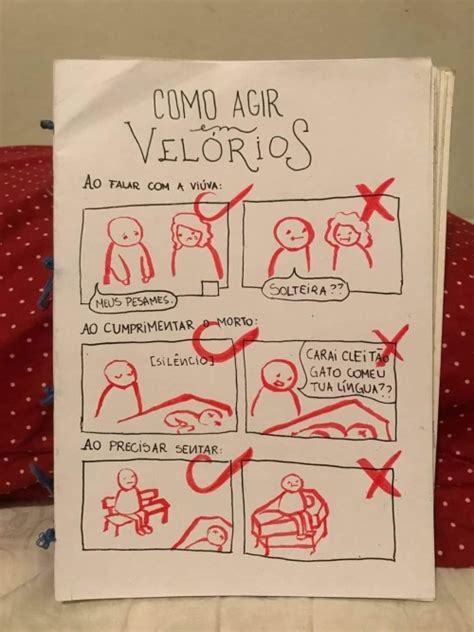 COMO AGIR
em
VELÓRIOS
AO FALAR COM A VIÚVA:
MEUS PESAMES.
SOLTEIRA??
AO CUMPRIMENTAR O MORTO:
[SILÊNCIO]
CARAI CLEITÃO
GATO COMEU
TUA LÍNGUA??
AO PRECISAR SENTAR: